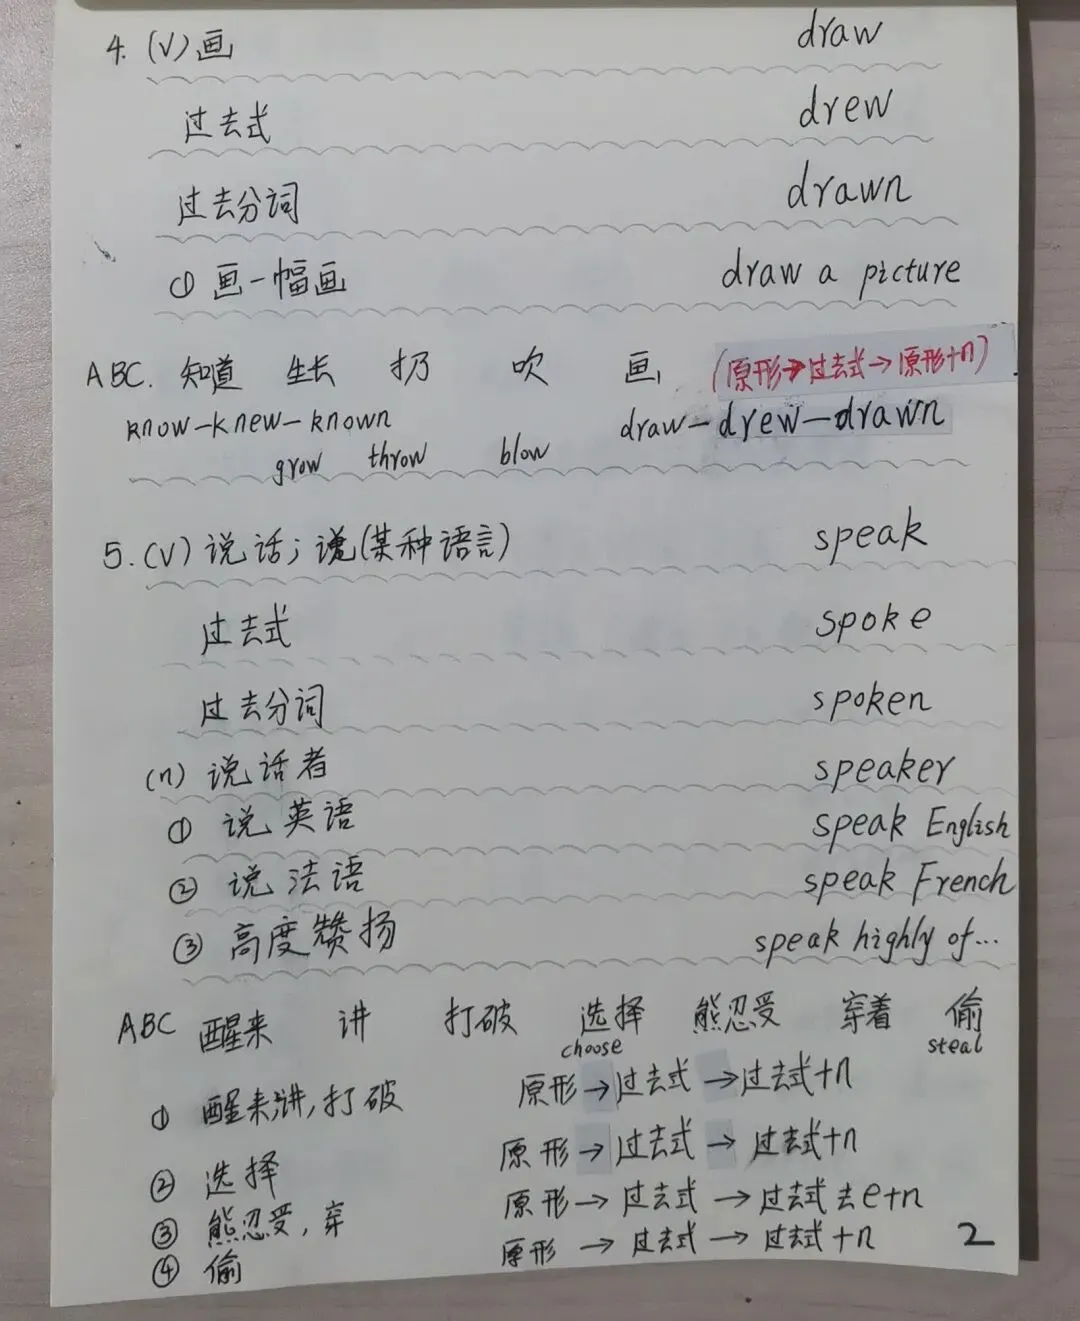 4. (V)画 draw
过去式 drew
过去分词 drawn
① 画一幅画 draw a picture
ABC. 知道 生长 扔 吹 画 (原形→过去式→原形+n)
know-knew-known draw-drew-drawn
grow throw blow
5. (V) 说话;说(某种语言) speak
过去式 spoke
过去分词 spoken
(n) 说话者 speaker
① 说英语 speak English
② 说法语 speak French
③ 高度赞扬 speak highly of...
ABC 醒来 讲 打破 选择 熊忍受 穿着 偷
choose steal
① 醒来,讲,打破 原形→过去式→过去式+n
② 选择 原形→过去式→过去式+n
③ 熊忍受,穿 原形→过去式→过去式去e+n
④ 偷 原形→过去式→过去式+n
2